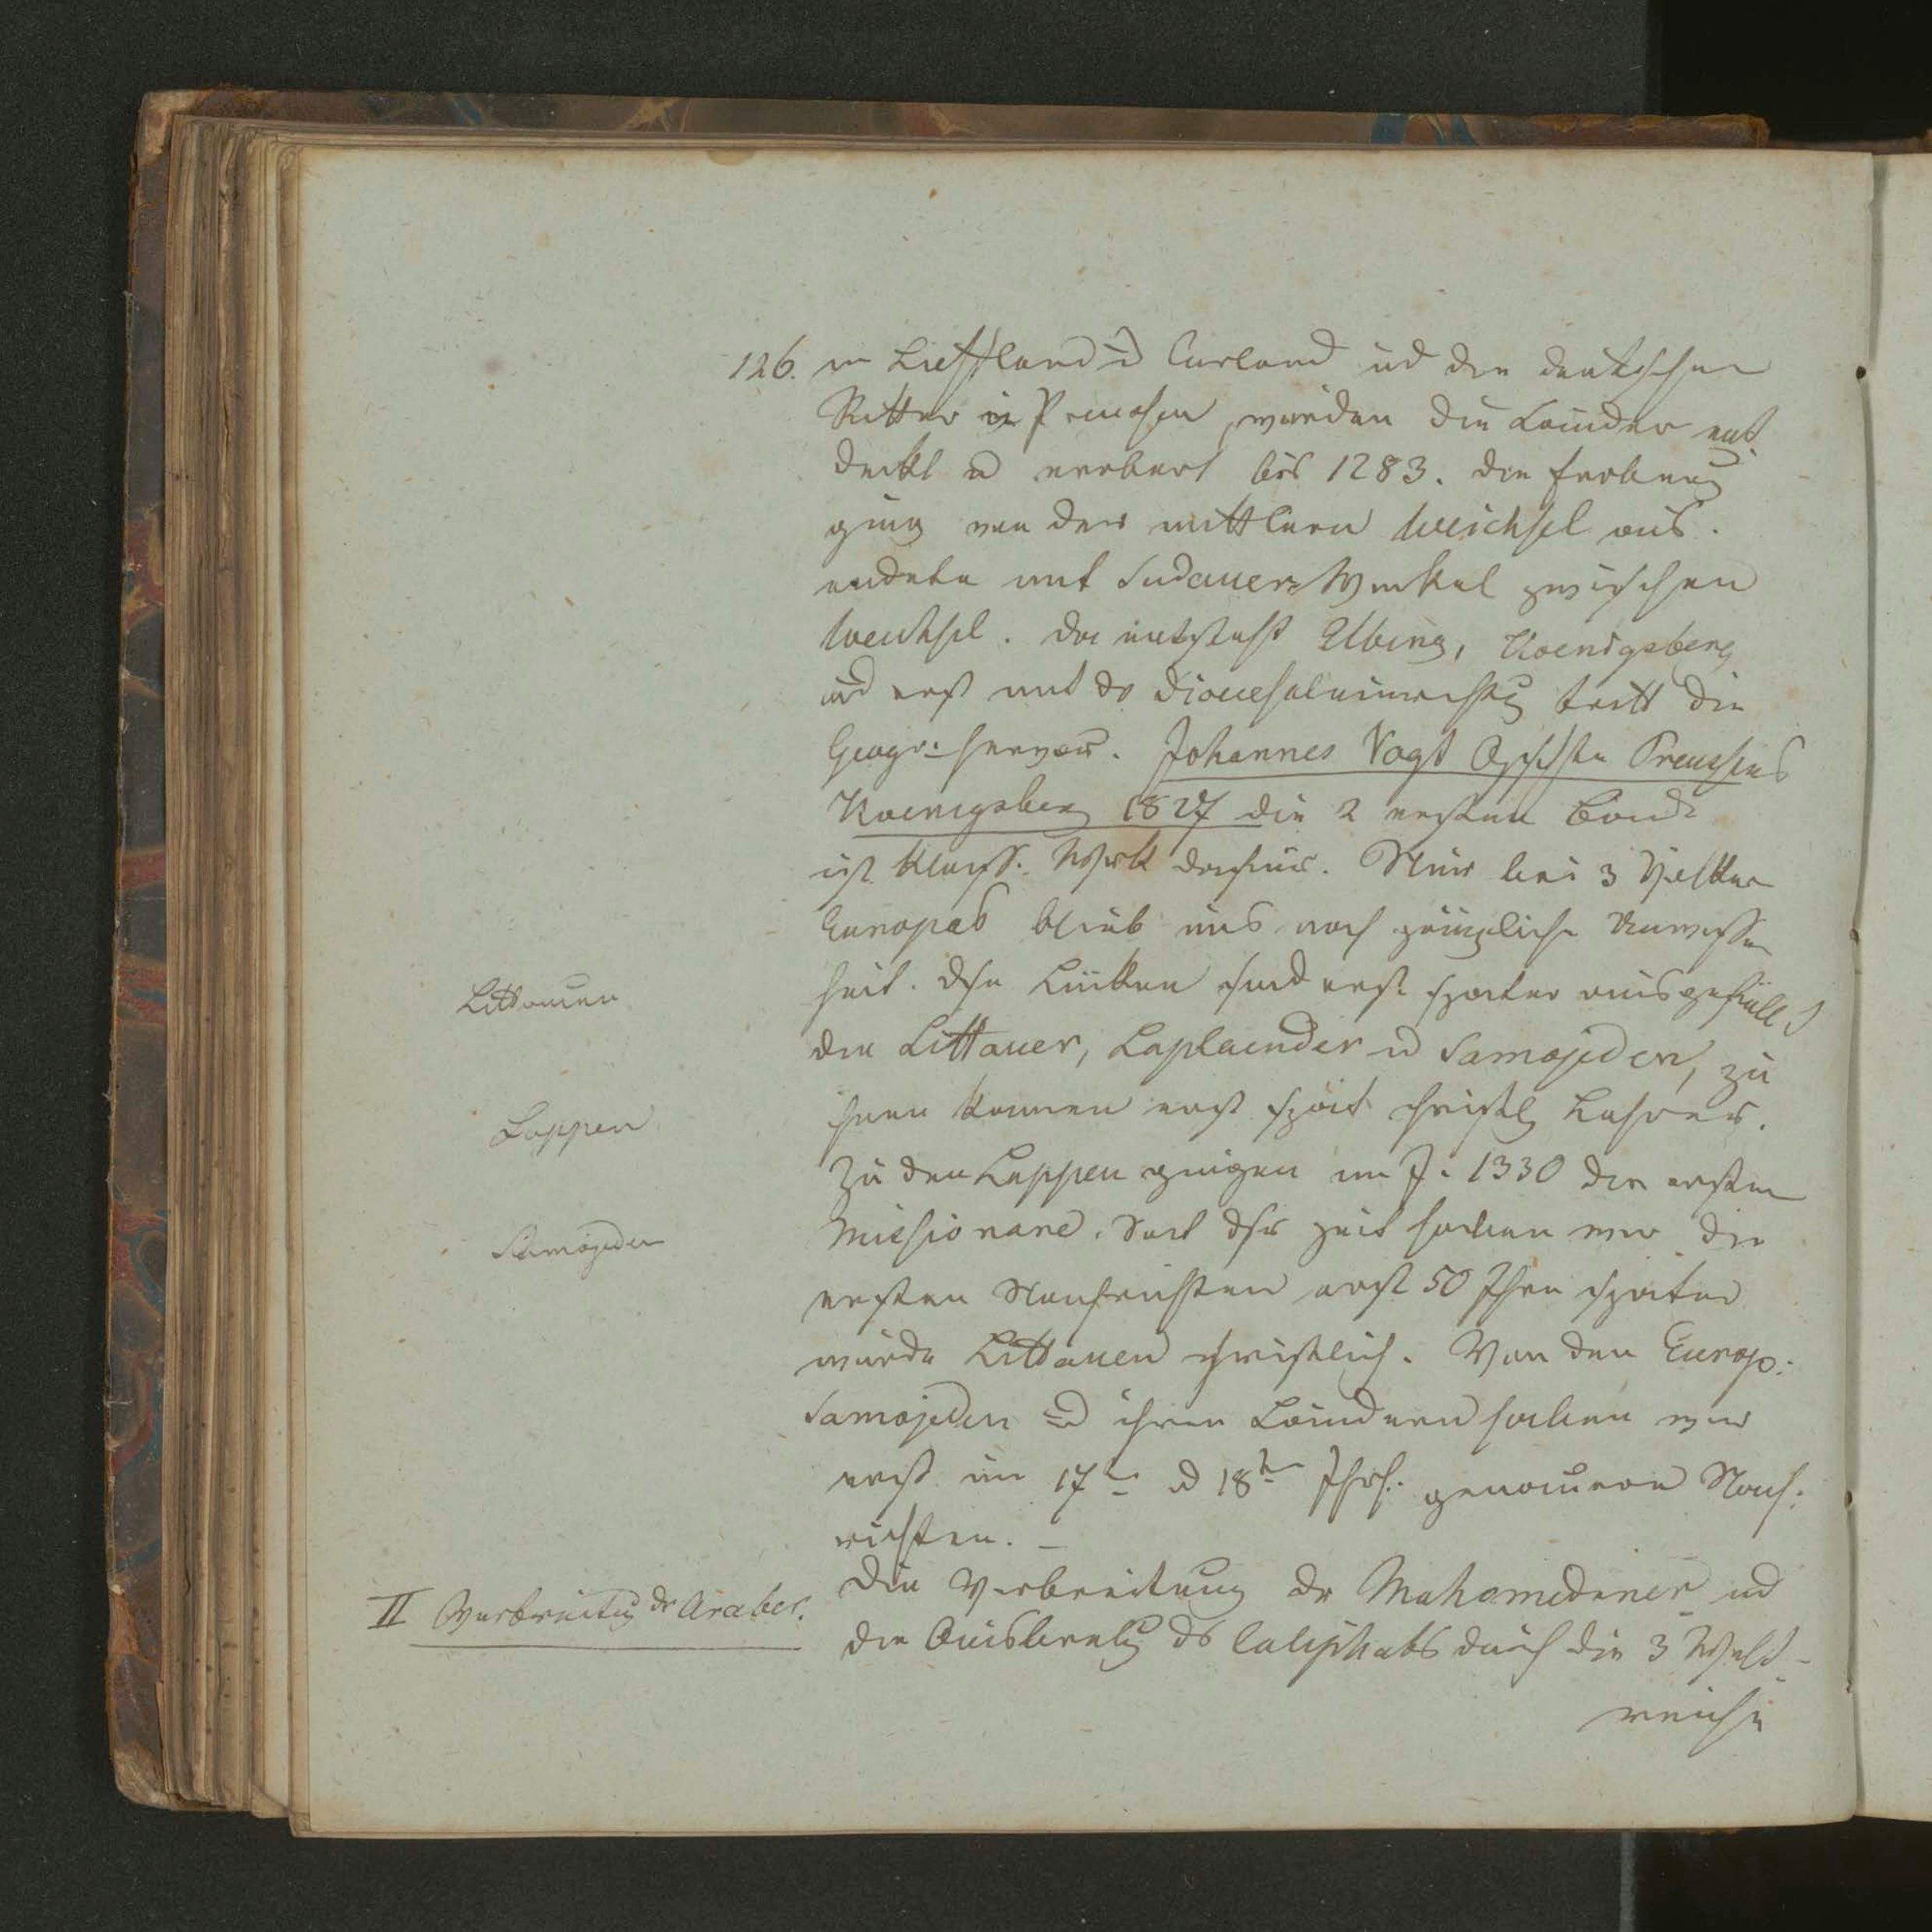 126. in Lieffland u Curland und den deutschen
Ritter in Preussen, wurden die Laender ent
deckt u erobert bis 1283. die Eroberung
ging von der mittlern Weichsel aus.
endete mit Sudauer-Winkel zwischen
Weichsel. da entsteht Elbing, Koenigsberg
und erst mit dr Dioucesaleinrichtg tritt die
Geogr: hervor. Johannes Vogt Gschchte Preussens
Koenigsberg 1827 die 2 ersten Bande
ist klass. Werk darüber. Nur bei 3 Völker
Europas blieb uns noch gänzliche Unwissen
heit. dse Lücken sind erst spaeter ausgefüllt
Littauen
die Littauer, Laplaender u Samojeden, zu
ihnen kamen erst spät christl Lehrer.
Lappen
Zu den Lappen gingen im J. 1330 die ersten
Missionare. Seit dsr Zeit haben wir die
Samojeden
ersten Nachrichten erst 50 Jhre später
wurde Littauen christlich. Von den Europ:
Samojeden u ihren Laendern haben wir
erst im 17ten u 18ten Jhrh. genauere Nach:
richten. —
II Verbreitung dr Araber.
Die Verbreitung dr Mahomedaner und
die Ausbreitg ds Caliphats durch die 3 Welt-
reiche